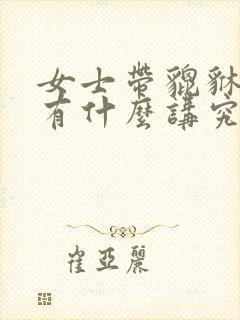 女士帶貔貅
有什麼講究
崔亞麗